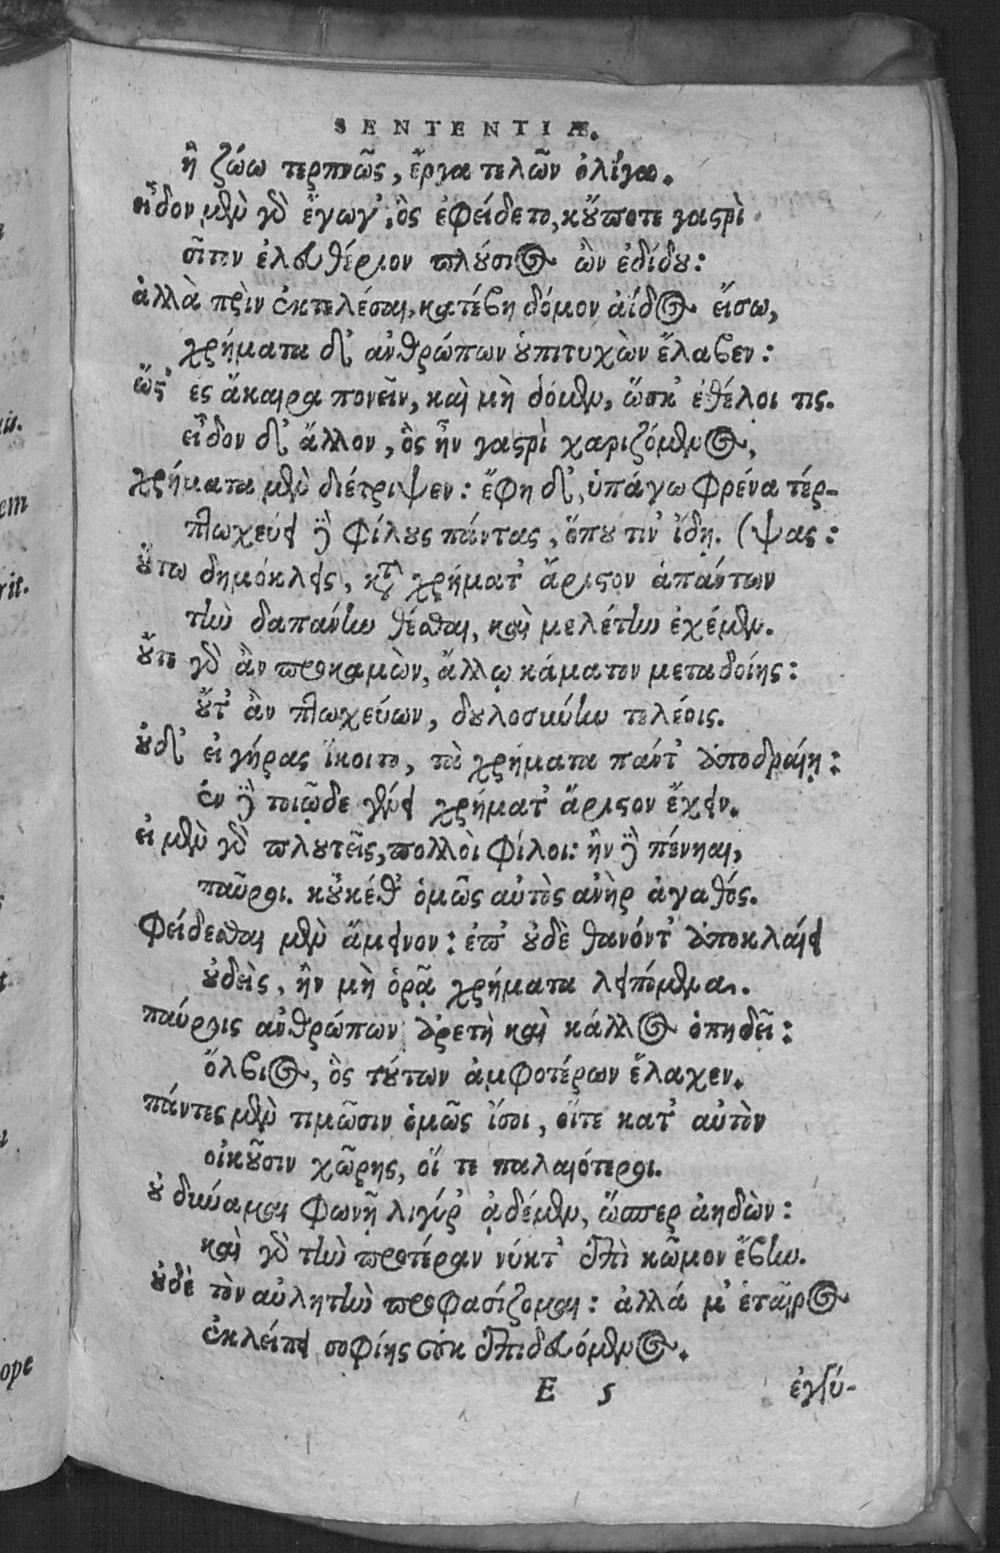 SENTENTIÆ.
ἢ ζώω τερπνῶς, ἔργα τελῶν ὀλίγα.
εἶδον μὲν γὸ ἔγωγ', ὃς ἐφείδετο, κὔποτε γαστρὶ
σῖτον ἐλευθέριον πλούσιος ὢν ἐδίδου:
ἀλλὰ πρὶν ἐκτελέσαι, κατέβη δόμον ἀίδος εἴσω,
χρήματα δ' ἀνθρώπων οὑπιτυχὼν ἔλαβεν:
ὥστ' ἐς ἄκαιρα πονεῖν, καὶ μὴ δόμεν, ὥσκ' ἐθέλοι τις.
εἶδον δ' ἄλλον, ὃς ἦν γαστρὶ χαριζόμενος,
χρήματα μὲν διέτριψεν: ἔφη δ', ὑπάγω φρένα τέρ-
πτωχεύει δὲ φίλους πάντας, ὅπου τιν' ἴδῃ. (ψας:
οὕτω δημόκλεις, κατὰ χρήματ' ἄριστον ἁπάντων
τὴν δαπάνην θέσθαι, καὶ μελέτην ἐχέμεν.
οὔτε γὰρ ἂν προκαμὼν, ἄλλῳ κάματον μεταδοίης:
οὔτ' ἂν πτωχεύων, δουλοσύνην τελέοις.
οὐδ' εἰ γήρας ἵκοιτο, τὰ χρήματα πάντ' ἀποδραίη:
ἐν δὲ τοιῷδε γένει χρήματ' ἄριστον ἔχειν.
εἰ μὲν γὰρ πλουτεῖς, πολλοὶ φίλοι: ἢν δὲ πένηαι,
παῦροι. κοὐκέθ' ὁμῶς αὐτὸς ἀνὴρ ἀγαθός.
φείδεσθαι μὲν ἄμεινον: ἐπ' οὐδὲ θανόντ' ἀποκλαίει
οὐδεὶς, ἢν μὴ ὁρᾷ χρήματα λειπόμενα.
παύροις ἀνθρώπων ἀρετὴ καὶ κάλλος ὀπηδεῖ:
ὄλβιος, ὃς τούτων ἀμφοτέρων ἔλαχεν.
πάντες μὲν τιμῶσιν ὁμῶς ἴσοι, οἵτε κατ' αὐτὸν
οἰκοῦσιν χῶρης, οἵ τε παλαιότεροι.
οὐ δύναμαι φωνῇ λιγύρ' ᾀδέμεν, ὥσπερ ἀηδὼν:
καὶ γὰρ τὴν προτέραν νύκτ' ἐπὶ κῶμον ἔβην.
οὐδὲ τὸν αὐλητὴν προφασίζομαι: ἀλλά μ' ἑταῖρος
ἐκλείπει σοφίης οὐκ ἐπιδευόμενος.
E 5
ἐγγύ-